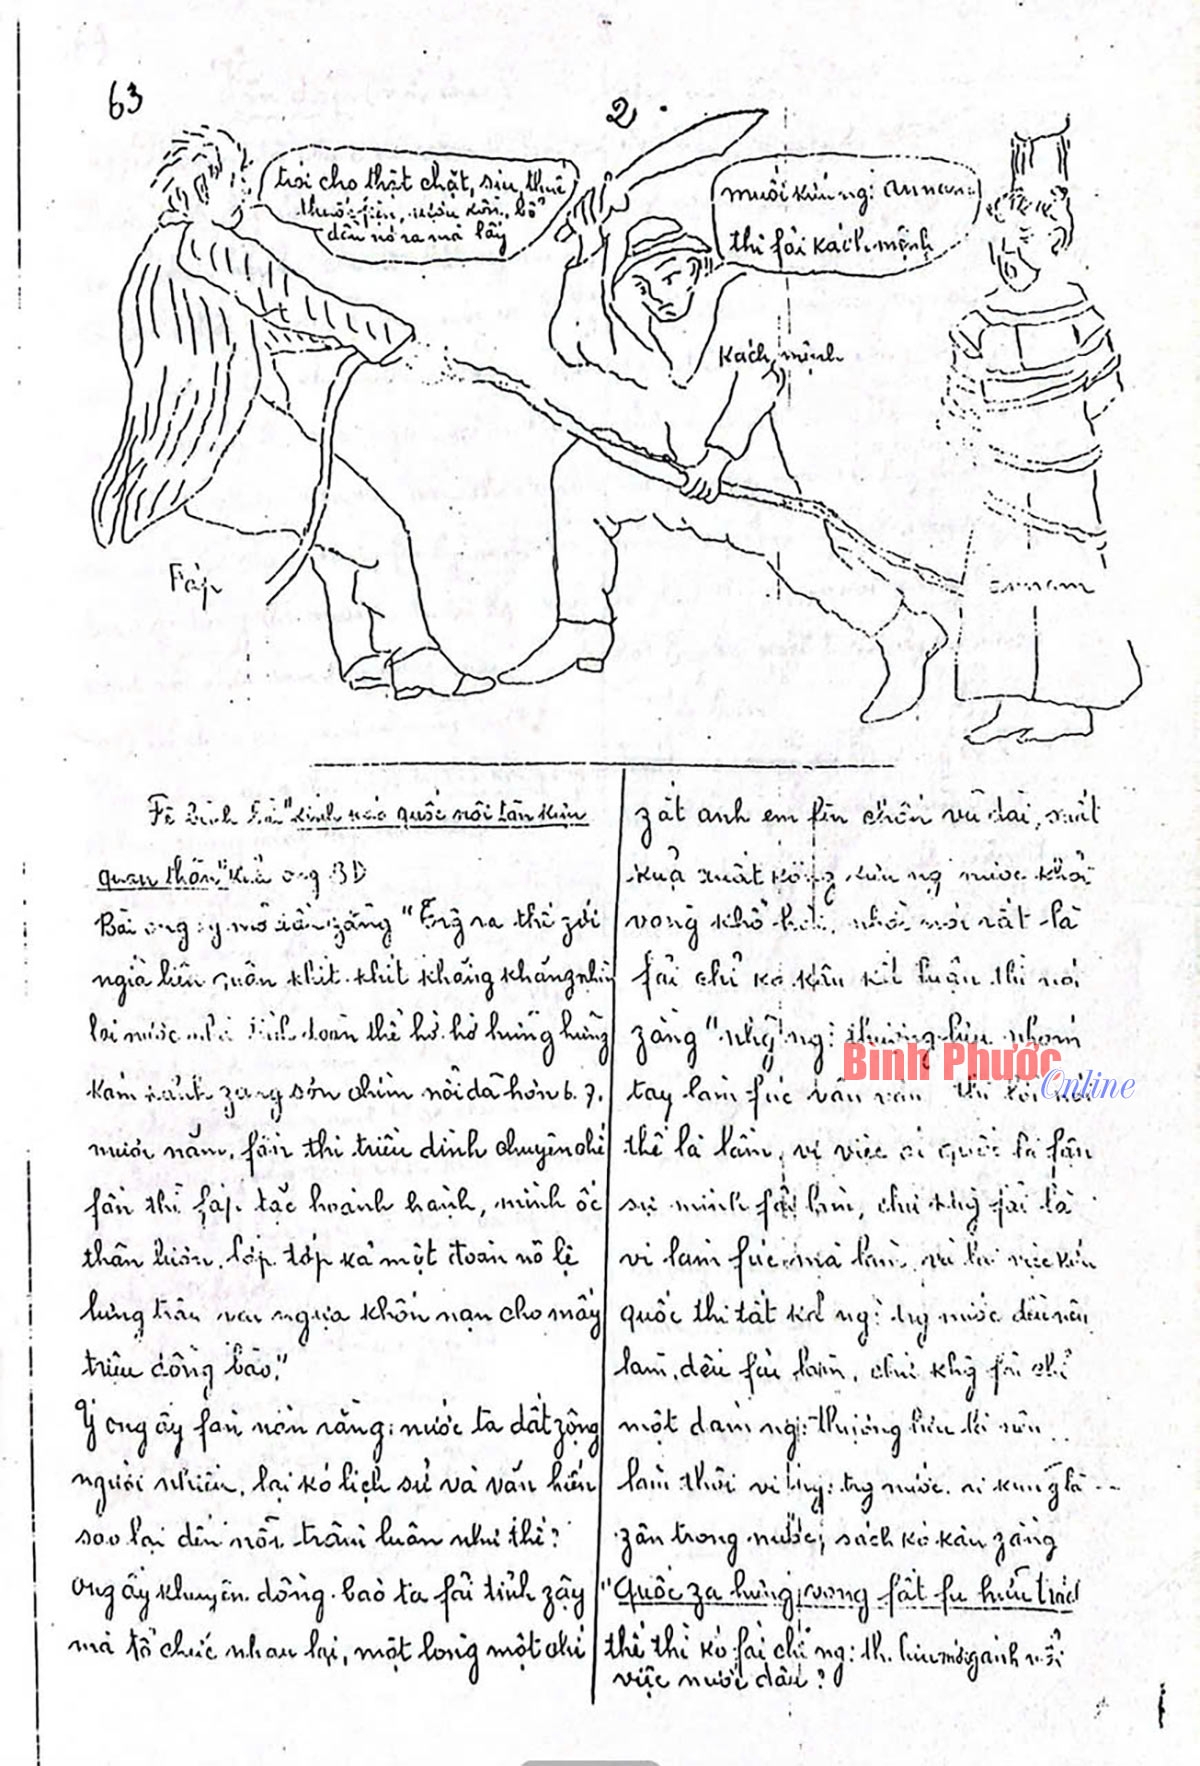 63
2.
trói cho thật chặt, siu, thuê
thuốc fiện, rượu kồn, bổ
dầu nó ra mà lấy
muối kứu ng: annam
thì fải kách mệnh
Kách mệnh
Fáp
annam
Fê bình bài "kính káo quốc nội tân kựu
quan thân" kuả ong BD
Bài ong ấy mở đầu zằng "Trậ ra thế zới
ngià liên muôn khít khít khăng khăng nhìn
lại nước nhà tình đoàn thể hờ hờ hững hững
kám kảnh zang sơn chìm nổi đã hơn 6.7.
mươi năm, fần thì triều đình chuyên chế
fần thì fáp tặc hoành hành, mình ốc
thân lươn, lóp tóp kả một đoàn nô lệ
lưng trâu vai ngựa khốn nạn cho mấy
triệu đồng bào."
Ý ong ấy fàn nàn rằng: nước ta đất zộng
người nhiều, lại kó lịch sử và văn hiến
sao lại đến nỗi trầm luân như thế?
ong ấy khuyên đồng bào ta fải tỉnh zậy
mà tổ chức nhau lại, một lòng một chí
zắt anh em fến chốn vũ đài, xuất
kuả xuất kông kứu ng nước khỏi
vong khổ hải, nhời nói rất là
fải chỉ kó kâu kết luận thì nói
zằng "nhữ ng: thượng lưu nhom
tay làm fúc vân vân" thì lời nói
thế là lầm, vì việc ái quốc là fận
sự mình fải làm, chứ khg fải là
vì làm fúc mà làm, vả lại việc kứu
quốc thì tất kả ng: trg nước đều nên
làm, đều fải làm, chứ khg fải chỉ
một đám ng: thượng lưu là nên
làm thôi vì ng: trg nước ai kũng là
zân trong nước; sách kó kâu zằng
"Quốc za hưng vong fất fu hữu trách
thế thì kó fải chỉ ng: th. lưu mới gánh nổi
việc nước đâu?
Bình Phước
Online